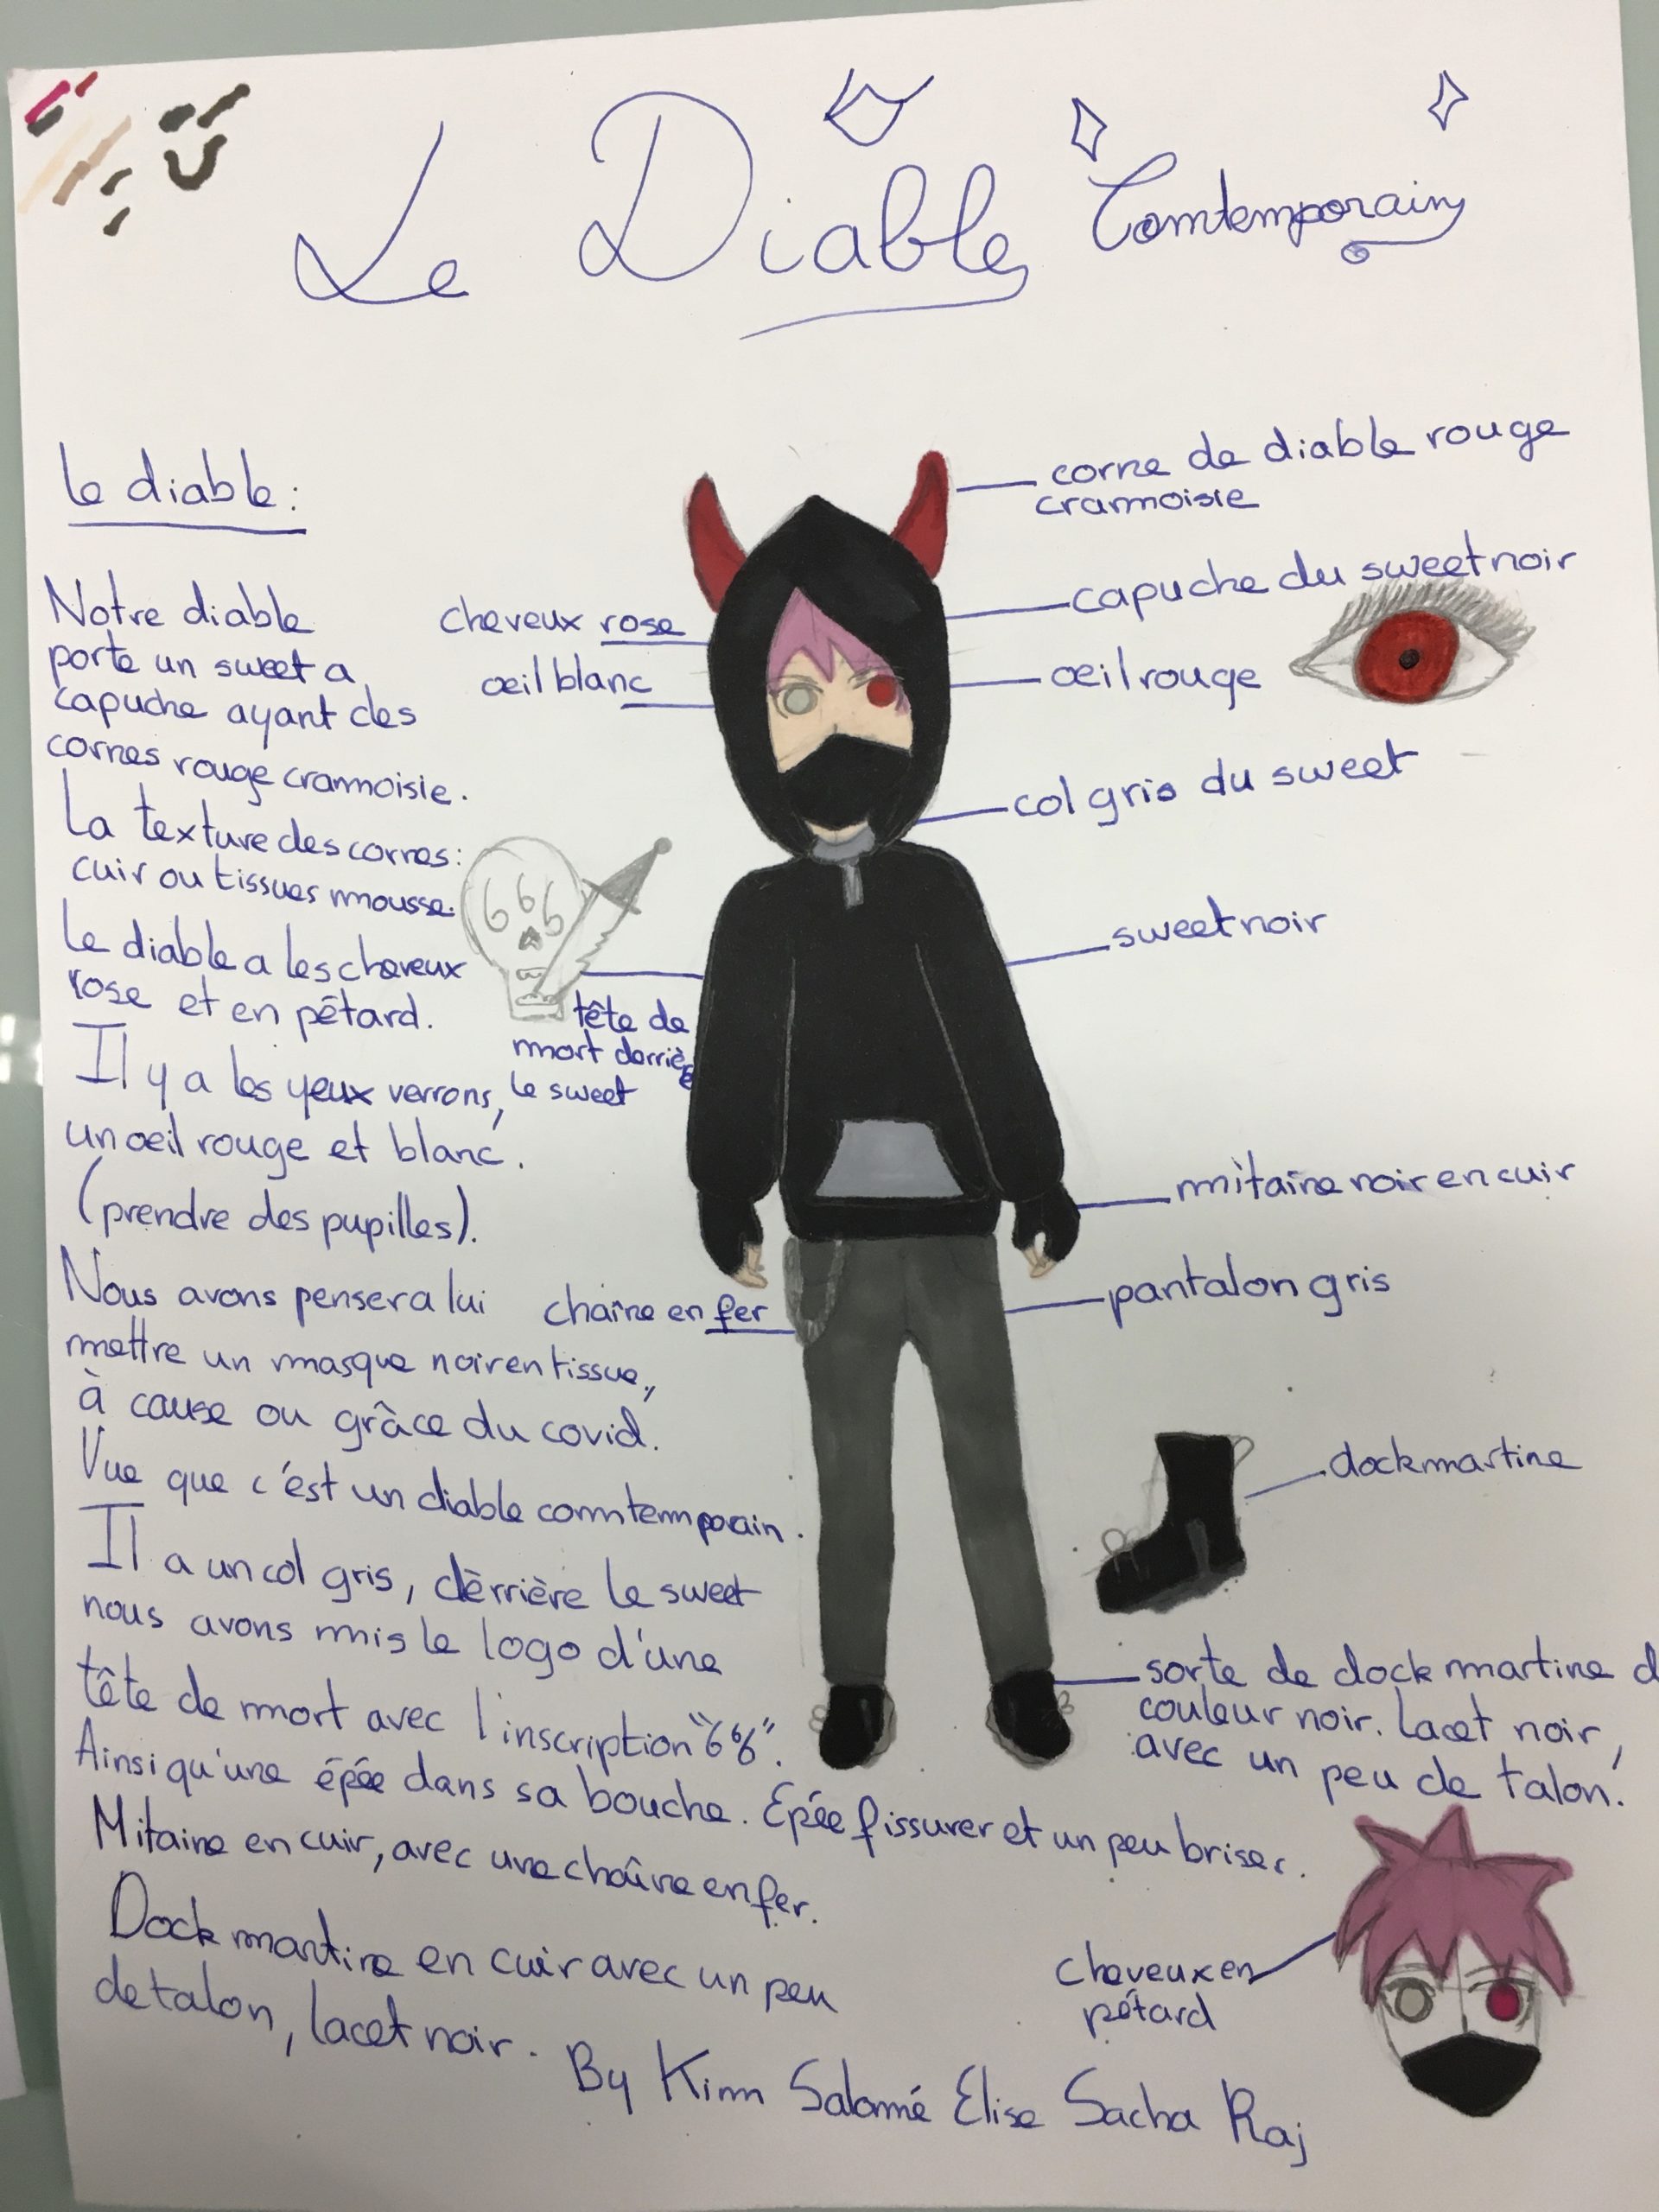 Le Diable Comtemporain
le diable :
Notre diable
porte un sweet a
capuche ayant des
cornes rouge cramoisie.
La texture des cornes :
cuir ou tissues mousse.
Le diable a les cheveux
rose et en pétard.
Il y a les yeux verrons,
un œil rouge et blanc.
(prendre des pupilles).
Nous avons penser a lui
mettre un masque noir en tissue,
à cause ou grâce du covid.
Vue que c'est un diable comtemporain.
Il a un col gris, dèrrière le sweet
nous avons mis le logo d'une
tête de mort avec l'inscription "666".
Ainsi qu'une épée dans sa bouche. Epée fissurer et un peu briser.
Mitaine en cuir, avec une chaîne en fer.
Dock martine en cuir avec un peu
de talon, lacet noir.
cheveux rose
œil blanc
666
tête de
mort derrière
le sweet
chaîne en fer
corne de diable rouge
cramoisie
capuche du sweet noir
œil rouge
col gris du sweet
sweet noir
mitaine noir en cuir
pantalon gris
dock martine
sorte de dock martine d
couleur noir. Lacet noir,
avec un peu de talon.
cheveux en
pétard
By Kim Salomé Elise Sacha Raj